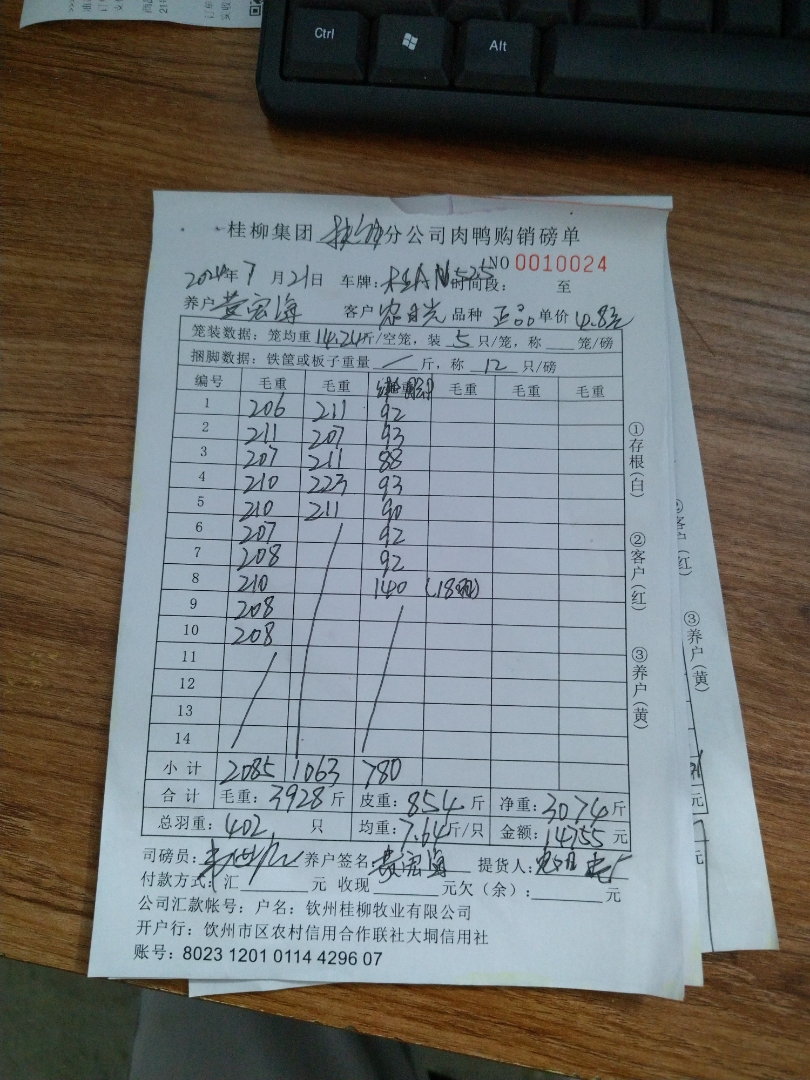 Ctrl
Alt
桂柳集团 钦州 分公司肉鸭购销磅单
NO 0010024
2024年7月21日 车牌:桂AN525 时间段: 至
养户 黄宏海 客户 农日光 品种 正品 单价 4.8元
笼装数据:笼均重 14.24 斤/空笼,装 5 只/笼,称 笼/磅
捆脚数据:铁筐或板子重量 / 斤,称 12 只/磅
编号 毛重 毛重 毛重 毛重 毛重
1 206 211 92
2 211 207 93
3 207 211 88
4 210 223 93
5 210 211 90
6 207 92
7 208 92
8 210 140 (18只)
9 208
10 208
11
12
13
14
小计 2085 1063 780
合计 毛重:3928斤 皮重:854斤 净重:3074斤
总羽重:402 只 均重:7.64斤/只 金额:14755元
司磅员: 养户签名:黄宏海 提货人:
付款方式:汇 元 收现 元欠(余): 元
公司汇款帐号:户名:钦州桂柳牧业有限公司
开户行:钦州市区农村信用合作联社大垌信用社
账号:8023 1201 0114 4296 07
①存根(白)
②客户(红)
③养户(黄)
客户(红)
③养户(黄)
元
元